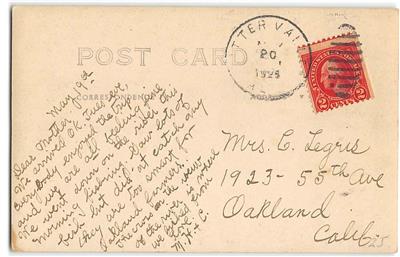 POST CARD
CORRESPONDENCE
May 19th
Dear Mother,
We arrived OK Tues. ev.
Everybody enjoyed the trip
and we are all feeling fine.
We went down on the river this
morning fishing. Saw lots of
fish but did not catch any
they are too smart for
Oakland farmers.
The cross on the
of the river is where
we fished from
Love
M. H + C.
TTER VAL
20
1925
UNITED STATES
2
2
Mrs. C. Legris
1923-55th Ave
Oakland
Calif
25